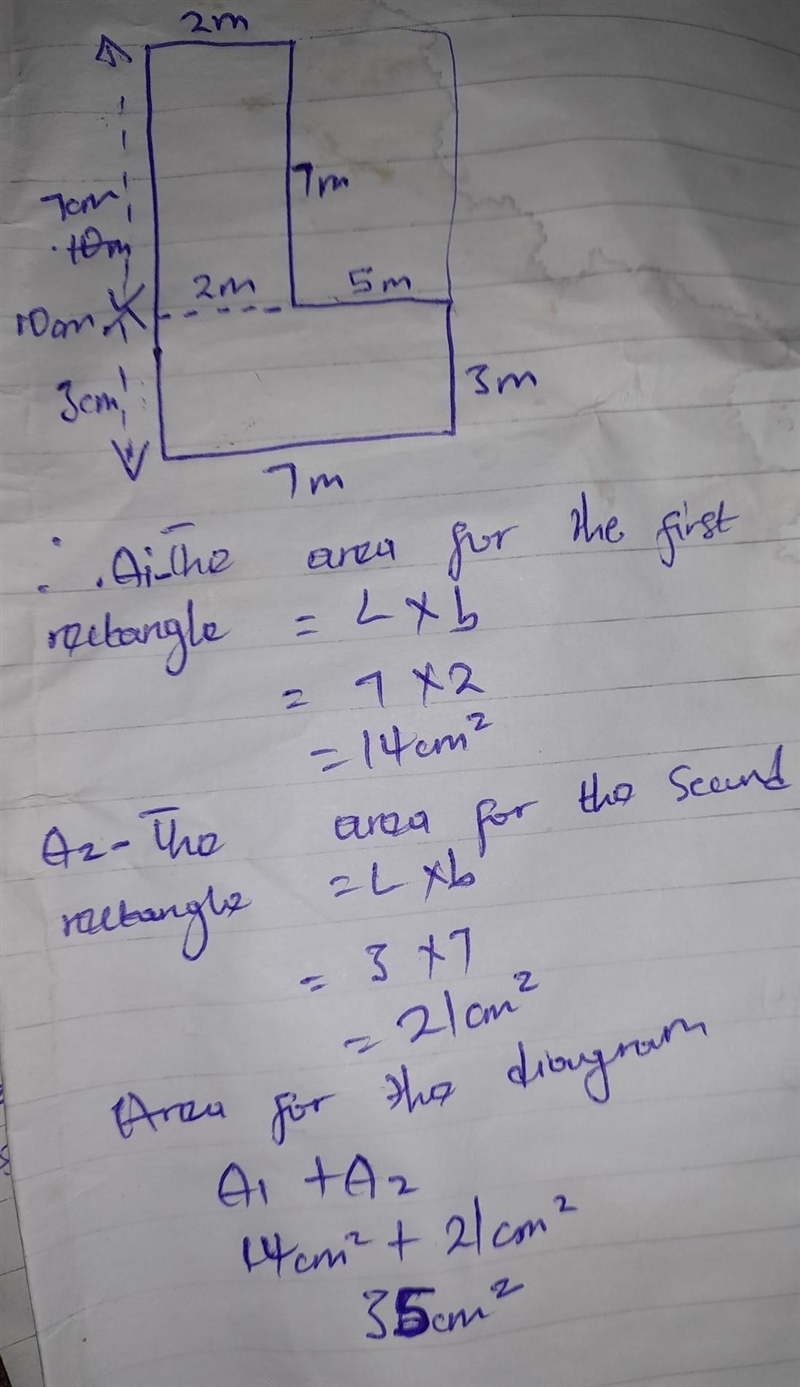 2m
7m
7cm
10m
2m
5m
10cm
3cm
3m
7m
∴ A₁-The area for the first
rectangle = L × b
= 7 × 2
= 14cm²
A₂-The area for the Second
rectangle = L × b
= 3 × 7
= 21cm²
Area for the diagram
A₁ + A₂
14cm² + 21cm²
35cm²